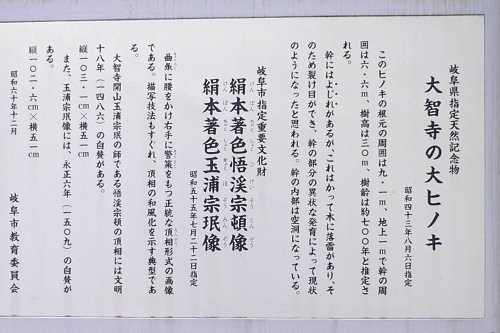 岐阜県指定天然記念物
大智寺の大ヒノキ
昭和四十三年八月六日指定
このヒノキの根元の周囲は九・一m、地上一mで幹の周
囲は六・六m、樹高は三〇m、樹齢は約七〇〇年と推定さ
れる。
幹にはよじれがあるが、これはかって木に落雷があり、そ
のため裂け目ができ、幹の部分の異状な発育によって現状
のようになったと思われる。幹の内部は空洞になっている。
岐阜市指定重要文化財
絹本著色悟渓宗頓像
絹本著色玉浦宗珉像
昭和五十五年七月二十二日指定
曲彔に腰をかけ右手に警策をもつ正統な頂相形式の画像
である。描写技法もすぐれ、頂相の和風化を示す典型であ
る。
大智寺開山玉浦宗珉の師である悟渓宗頓の頂相には文明
十八年(一四八六)の自賛がある。
縦一〇三・一cm×横五一cm
また、玉浦宗珉像には、永正六年(一五〇九)の自賛が
ある。
縦一〇二・六cm×横五一cm
昭和六十年十二月
岐阜市教育委員会